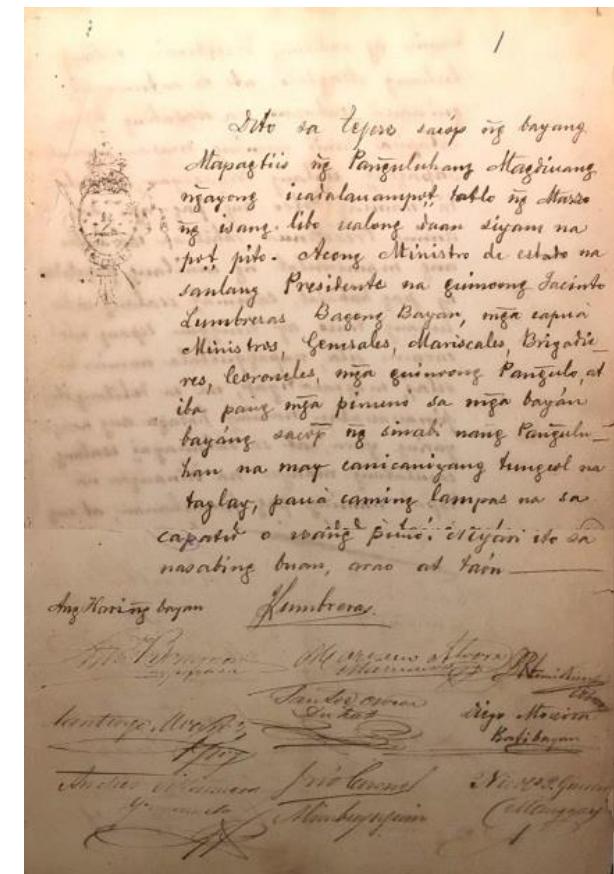 1
Dito sa Tejero sacóp ng̃ bayang
Mapagtiis ng̃ Pang̃uluhang Magdiuang
ng̃ayong icadalauampo,t, tatlo ng̃ Marzo
ng̃ isang libo ualong daan siyam na
po,t, pito. Acong Ministro de estado na
Presidente na guinoong Jacinto
Lumbreras Bagong Bayan, mg̃a capuá
Ministros, Generales, Mariscales, Brigadie_
res, Coroneles, mg̃a guinoong Pang̃ulo, at
iba pang mg̃a pinuno sa mg̃a bayán
bayáng sacóp ng̃ sinabi nang Pang̃ulu_
han na may canicaniyang tungcol na
taglay, pauá caming lampas na sa
capatid o ualang Niyari ito sa
nasabing buan, arao at taón
Ang Hari ng̃ bayan
Lumbreras.
Mariano Alvarez
Santos Nocon
Santiago Alvarez
Diego Moxica
Katibayan
Andres Villanueva